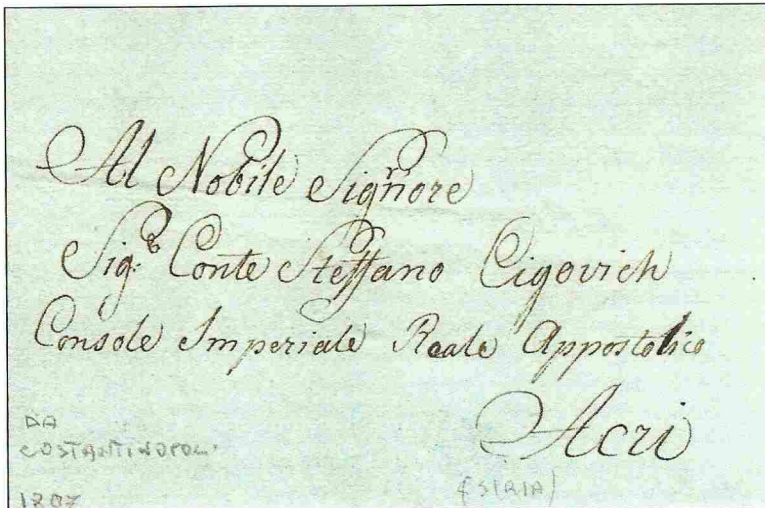 Al Nobile Signore
Sig.e Conte Steffano Cigovich
Console Imperiale Reale Appostolico
Acri
DA
COSTANTINOPOLI
(SIRIA)
1807